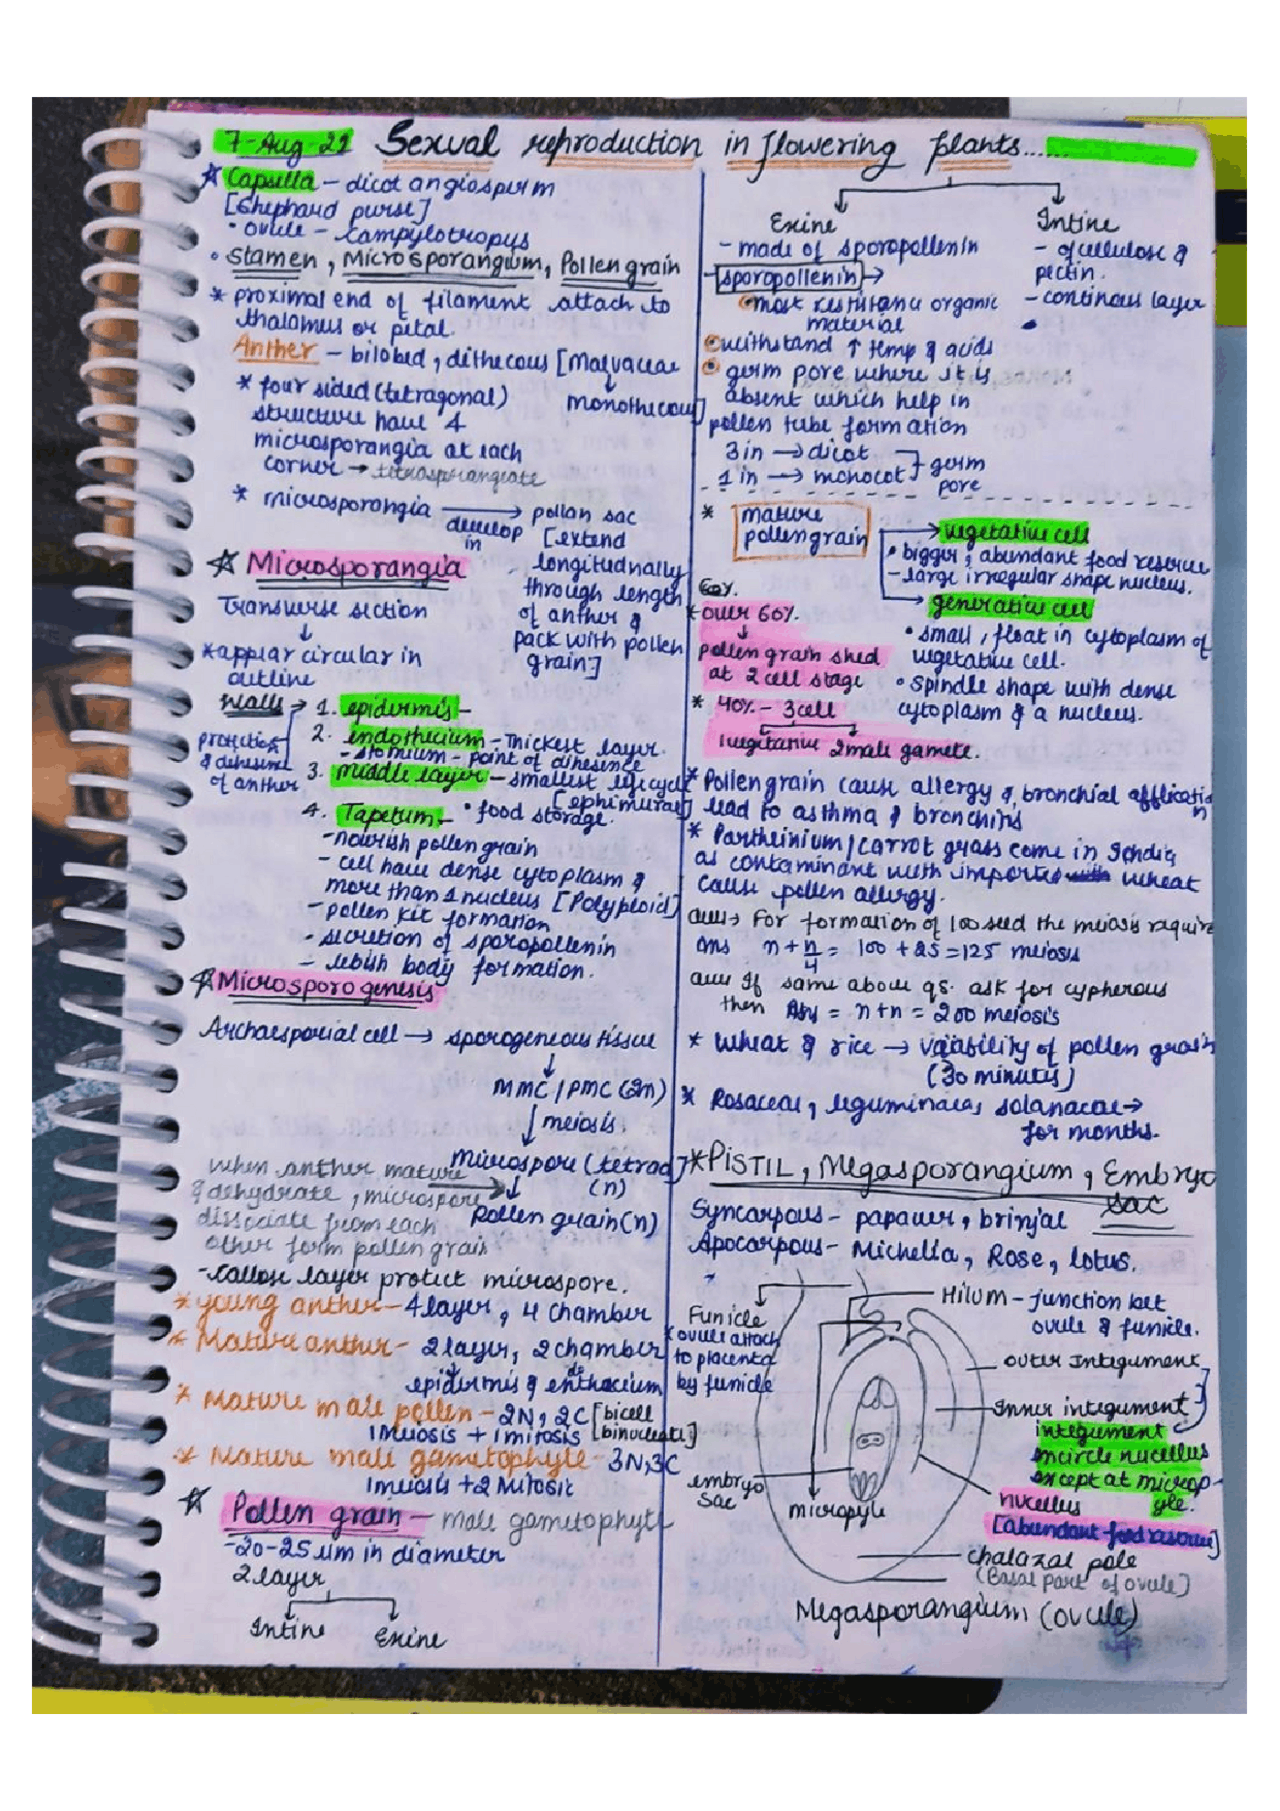 7-Aug-22 Sexual reproduction in flowering plants......
☆ Capsella - dicot angiosperm
[Shephard purse]
• ovule - campylotropus
• Stamen, Microsporangium, Pollen grain
* proximal end of filament attach to
thalamus or petal.
Anther - bilobed, dithecous [Malvaceae
↓
monothecous]
* four sided (tetragonal)
structure have 4
microsporangia at each
corner → tetrasporangiate
* microsporangia → pollan sac
develop in
[extend
longitudnally
through length
of anther &
pack with pollen
grain]
☆ Microsporangia
Transverse section
↓
* appear circular in
outline
Walls → 1. epidermis -
2. endothecium - Thickest layer.
- stomium - point of dihesence
3. middle layer - smallest lifecycle
[ephimural]
protection
& dehisence
of anther
4. Tapetum - • food storage.
- nourish pollen grain
- cell have dense cytoplasm &
more than 1 nucleus [Polyploid]
- pollen kit formation
- secretion of sporopollenin
- ubish body formation.
☆ Microsporogenesis
Archaesporial cell → sporogeneous tissue
↓
MMC / PMC (2n)
↓ meiosis.
microspore (tetrad)
(n)
↓
Pollen grain (n)
when anther mature
& dehydrate, microspore
dissociate from each
other form pollen grain
- callose layer protect microspore.
* young anther - 4 layer, 4 chamber
* Mature anther - 2 layer, 2 chamber
epidermis & enthecium
* Mature male pollen - 2N, 2C [bicell
1 meosis + 1 mitosis [binucleate]
* Mature male gametophyte - 3N, 3C
1 meosis + 2 Mitosis
☆ Pollen grain - male gametophyte
- 20-25 µm in diameter
2 layer
Intine Exine
Exine Intine
- made of sporopollenin
- sporopollenin →
• most resistance organic
material
• withstand ↑ temp & acids
• germ pore where it is
absent which help in
pollen tube formation
3 in → dicot
1 in → monocot
germ
pore
- of cellulose &
pectin.
- continous layer
* mature
pollengrain
→ vegetative cell
• bigger, abundant food reserve
- large irregular shape nucleus.
→ generative cell
• small, float in cytoplasm of
vegetative cell.
• Spindle shape with dense
cytoplasm & a nucleus.
60%.
* over 60%.
↓
pollen grain shed
at 2 cell stage
* 40% - 3 cell
1 vegitative 2 male gamete.
* Pollen grain cause allergy & bronchial affliction
lead to asthma & bronchitis
* Partheinium / carrot grass come in India
as contaminant with imported wheat
cause pollen allergy.
Ques → For formation of 100 seed the meiosis require
Ans n + n/4 = 100 + 25 = 125 meiosis
Ques If same above qs. ask for cypherous
then Ans = n+n = 200 meiosis
* Wheat & rice → viability of pollen grain
(30 minutes)
* Rosaceae, leguminaceae, solanaceae →
for months.
* PISTIL, Megasporangium, Embryo
sac
Syncarpous - papaver, brinjal
Apocarpous - Michelia, Rose, lotus.
Funicle
(ovule attach
to placenta
by funicle
Hilum - junction bet
ovule & funicle.
outer Integument
Inner integument
integument
encircle nucellus
except at microp-
yle.
embryo
sac
micropyle
nucellus
[abundant food reserve]
chalazal pole
(Basal part of ovule)
Megasporangium (ovule)